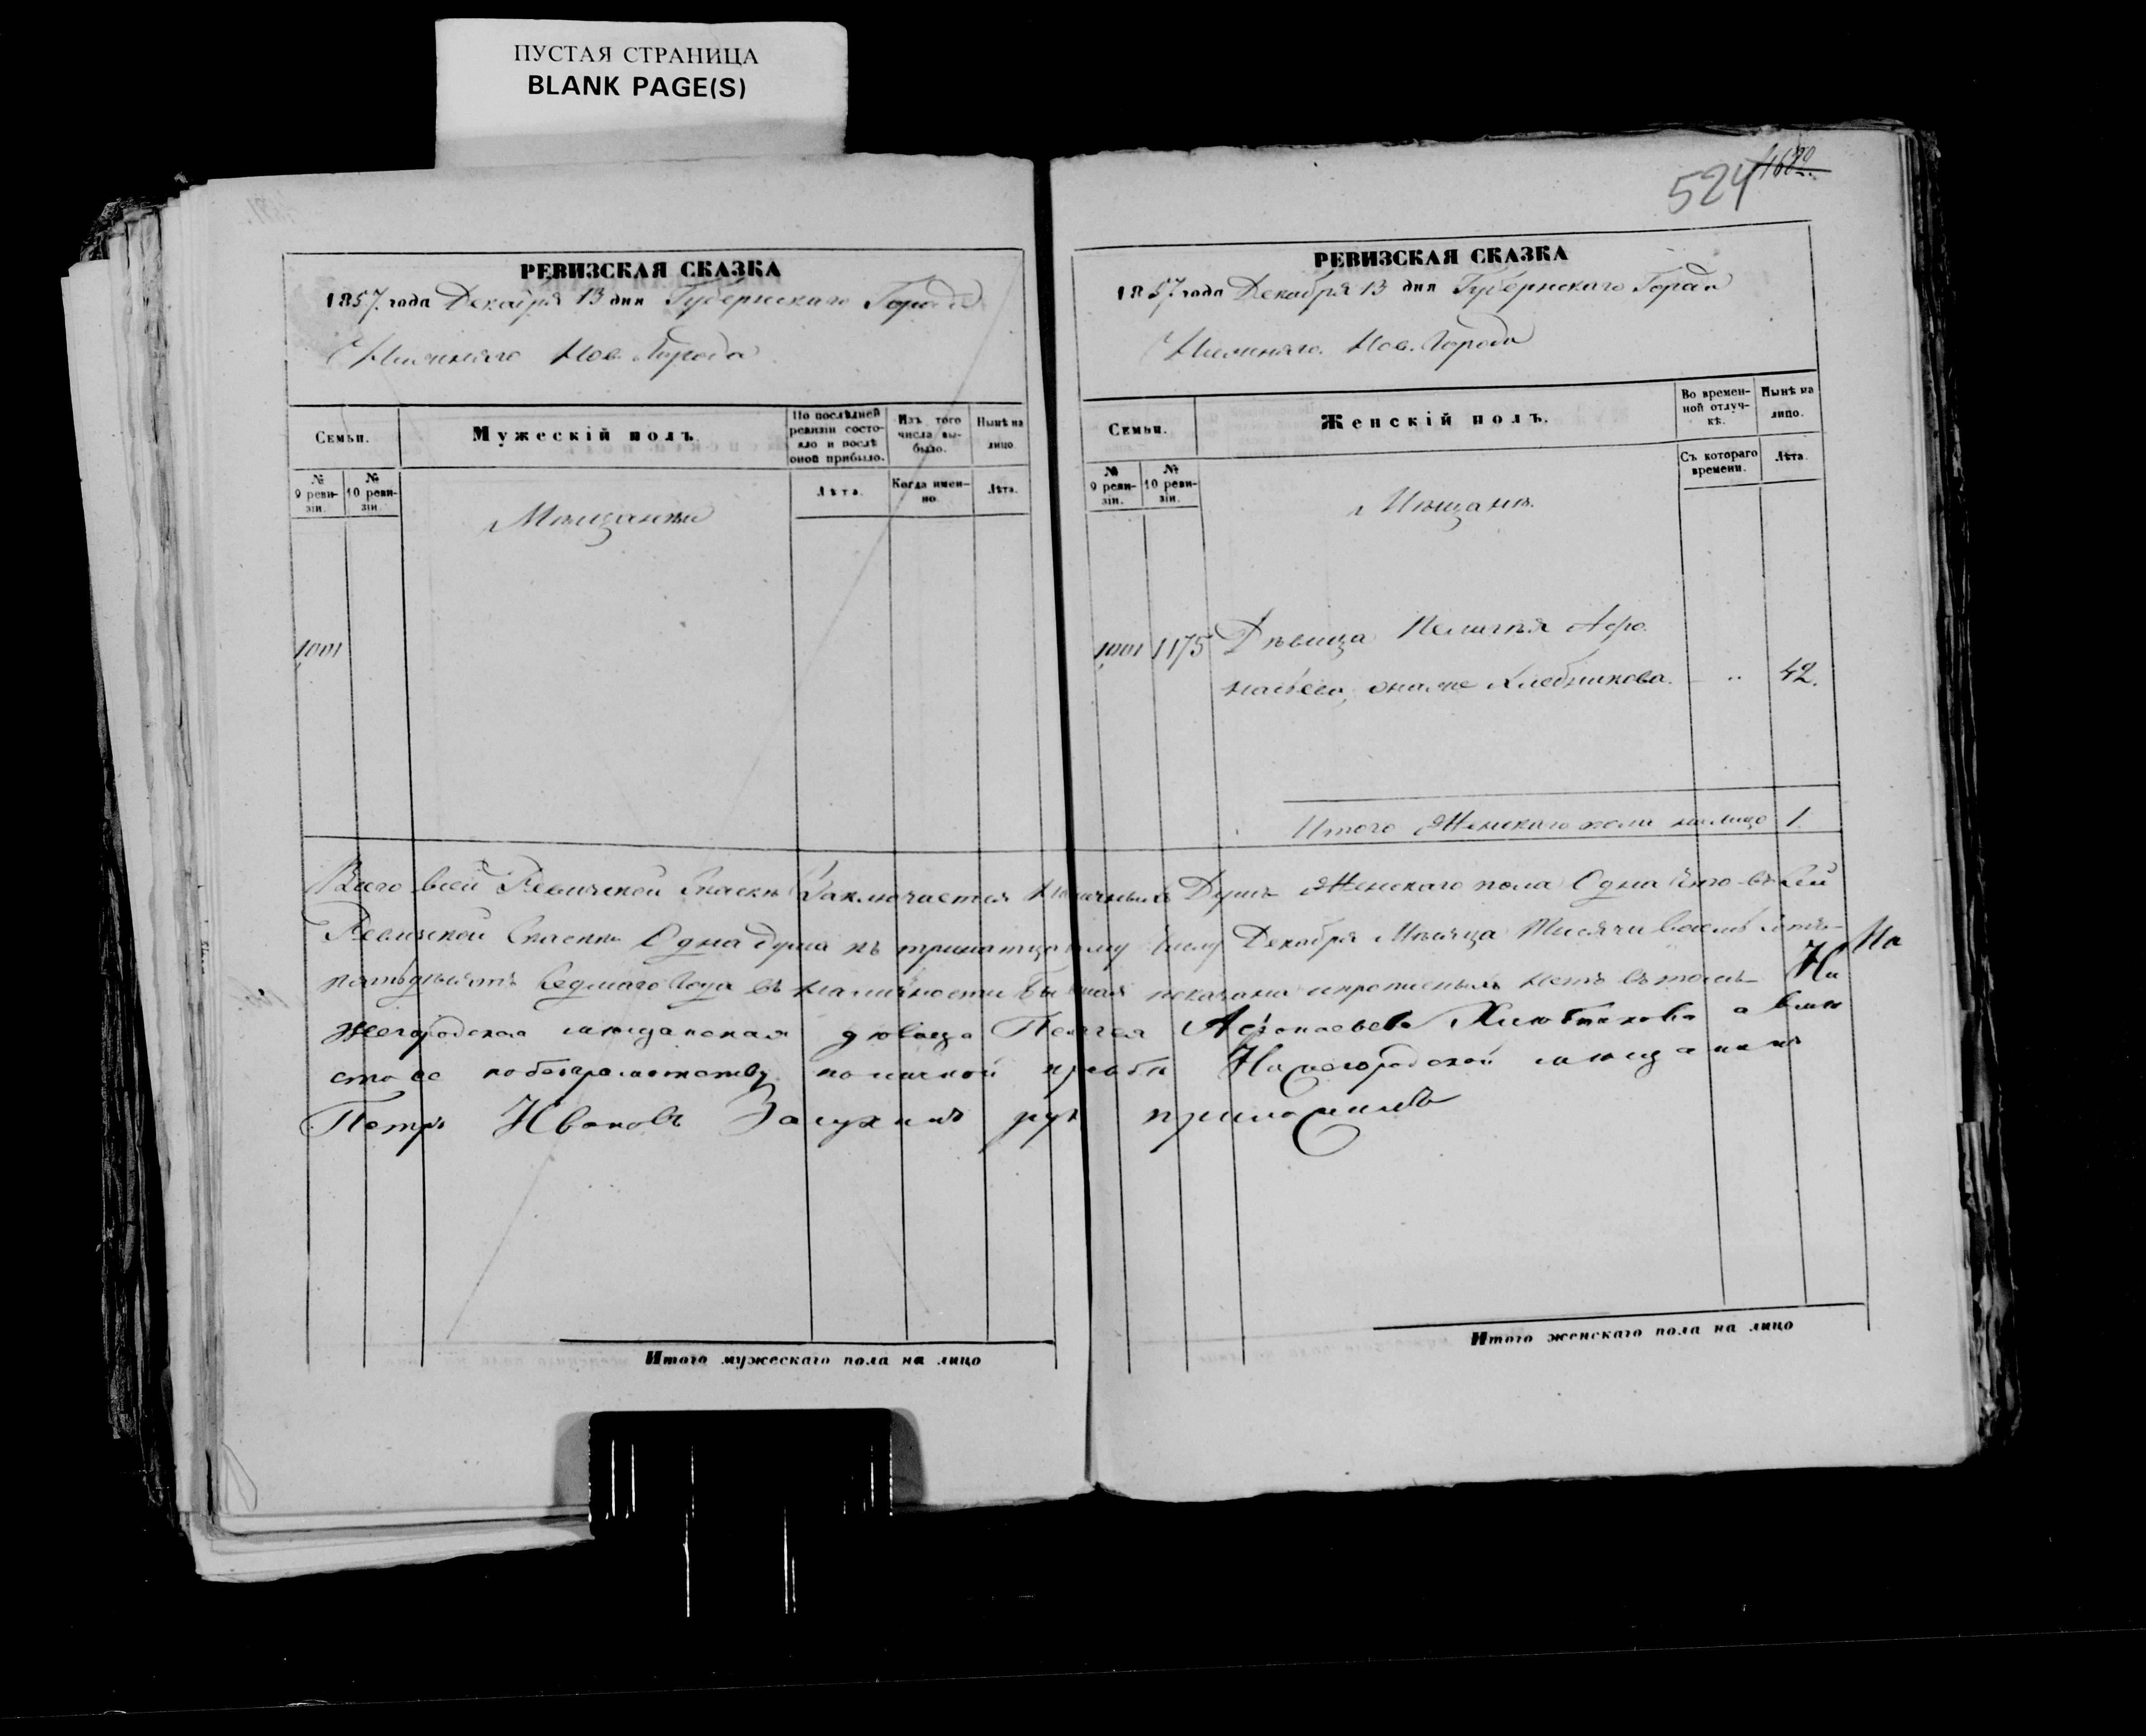 ПУСТАЯ СТРАНИЦА
BLANK PAGE(S)
РЕВИЗСКАЯ СКАЗКА
1857. года Декабря 13 дня Губернскаго Города
Нижняго Нов. Города
Семьи.
Мужескій полъ.
По послѣдней ревизіи состояло и послѣ оной прибыло.
Изъ того числа выбыло.
Нынѣ на лицо.
№ 9 ревизіи.
№ 10 ревизіи.
Лѣта.
Когда именно.
Лѣта.
Мѣщанѣ
1001
Итого мужескаго пола на лицо
524
РЕВИЗСКАЯ СКАЗКА
1857. года Декабря 13 дня Губернскаго Города
Нижняго Нов. Города
Семьи.
Женскій полъ.
Во временной отлучкѣ.
Нынѣ на лицо.
№ 9 ревизіи.
№ 10 ревизіи.
Съ котораго времени.
Лѣта.
Мѣщанѣ.
1001 1175 Дѣвица Пелагѣя Афо-
насьева, онаже Хлебникова. 42.
Итого Женскаго пола на лицо 1.
Всего в сей Ревизской Сказки Заключается наличныхъ Душъ Женскаго пола Одна Что въ сей
Ревизской Сказки Одна душа къ тринатцатому Числу Декабря Мѣсяца Тысяча восемь сотъ
пятьдѣсятъ Седмаго Года въ наличности показана и прописныхъ нетъ въ томъ Ни
жегородская мѣщанская дѣвица Афонасьева а вмѣ
сто ее по безграмотству по личной прозбѣ Нижегородской мѣщанинъ
Петръ Ивановъ руку приложилъ
Итого женскаго пола на лицо